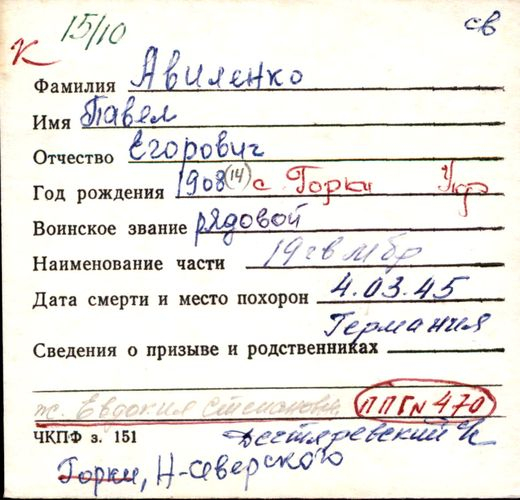 К 15/10 св
Фамилия Авиленко
Имя Павел
Отчество Егорович
Год рождения 1908 (14) с. Горки Укр
Воинское звание рядовой
Наименование части 19 гв мбр
Дата смерти и место похорон 4.03.45
Германия
Сведения о призыве и родственниках
ж. Евдокия Степановна ППГ№ 470
ЧКПФ з. 151 Дегтяревский
Горки, Н-Северского